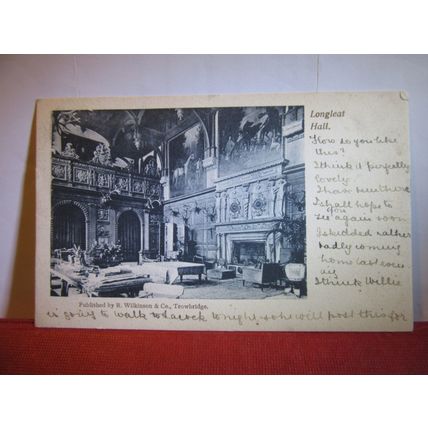 Longleat
Hall.
How do you like
this?
I think it perfectly
lovely
I have been there
I shall hope to
see you again soon
I skidded rather
badly coming
home last even
ing
I think Willie
is going to walk to Lacock tonight so he will post this for
Published by R. Wilkinson & Co., Trowbridge.